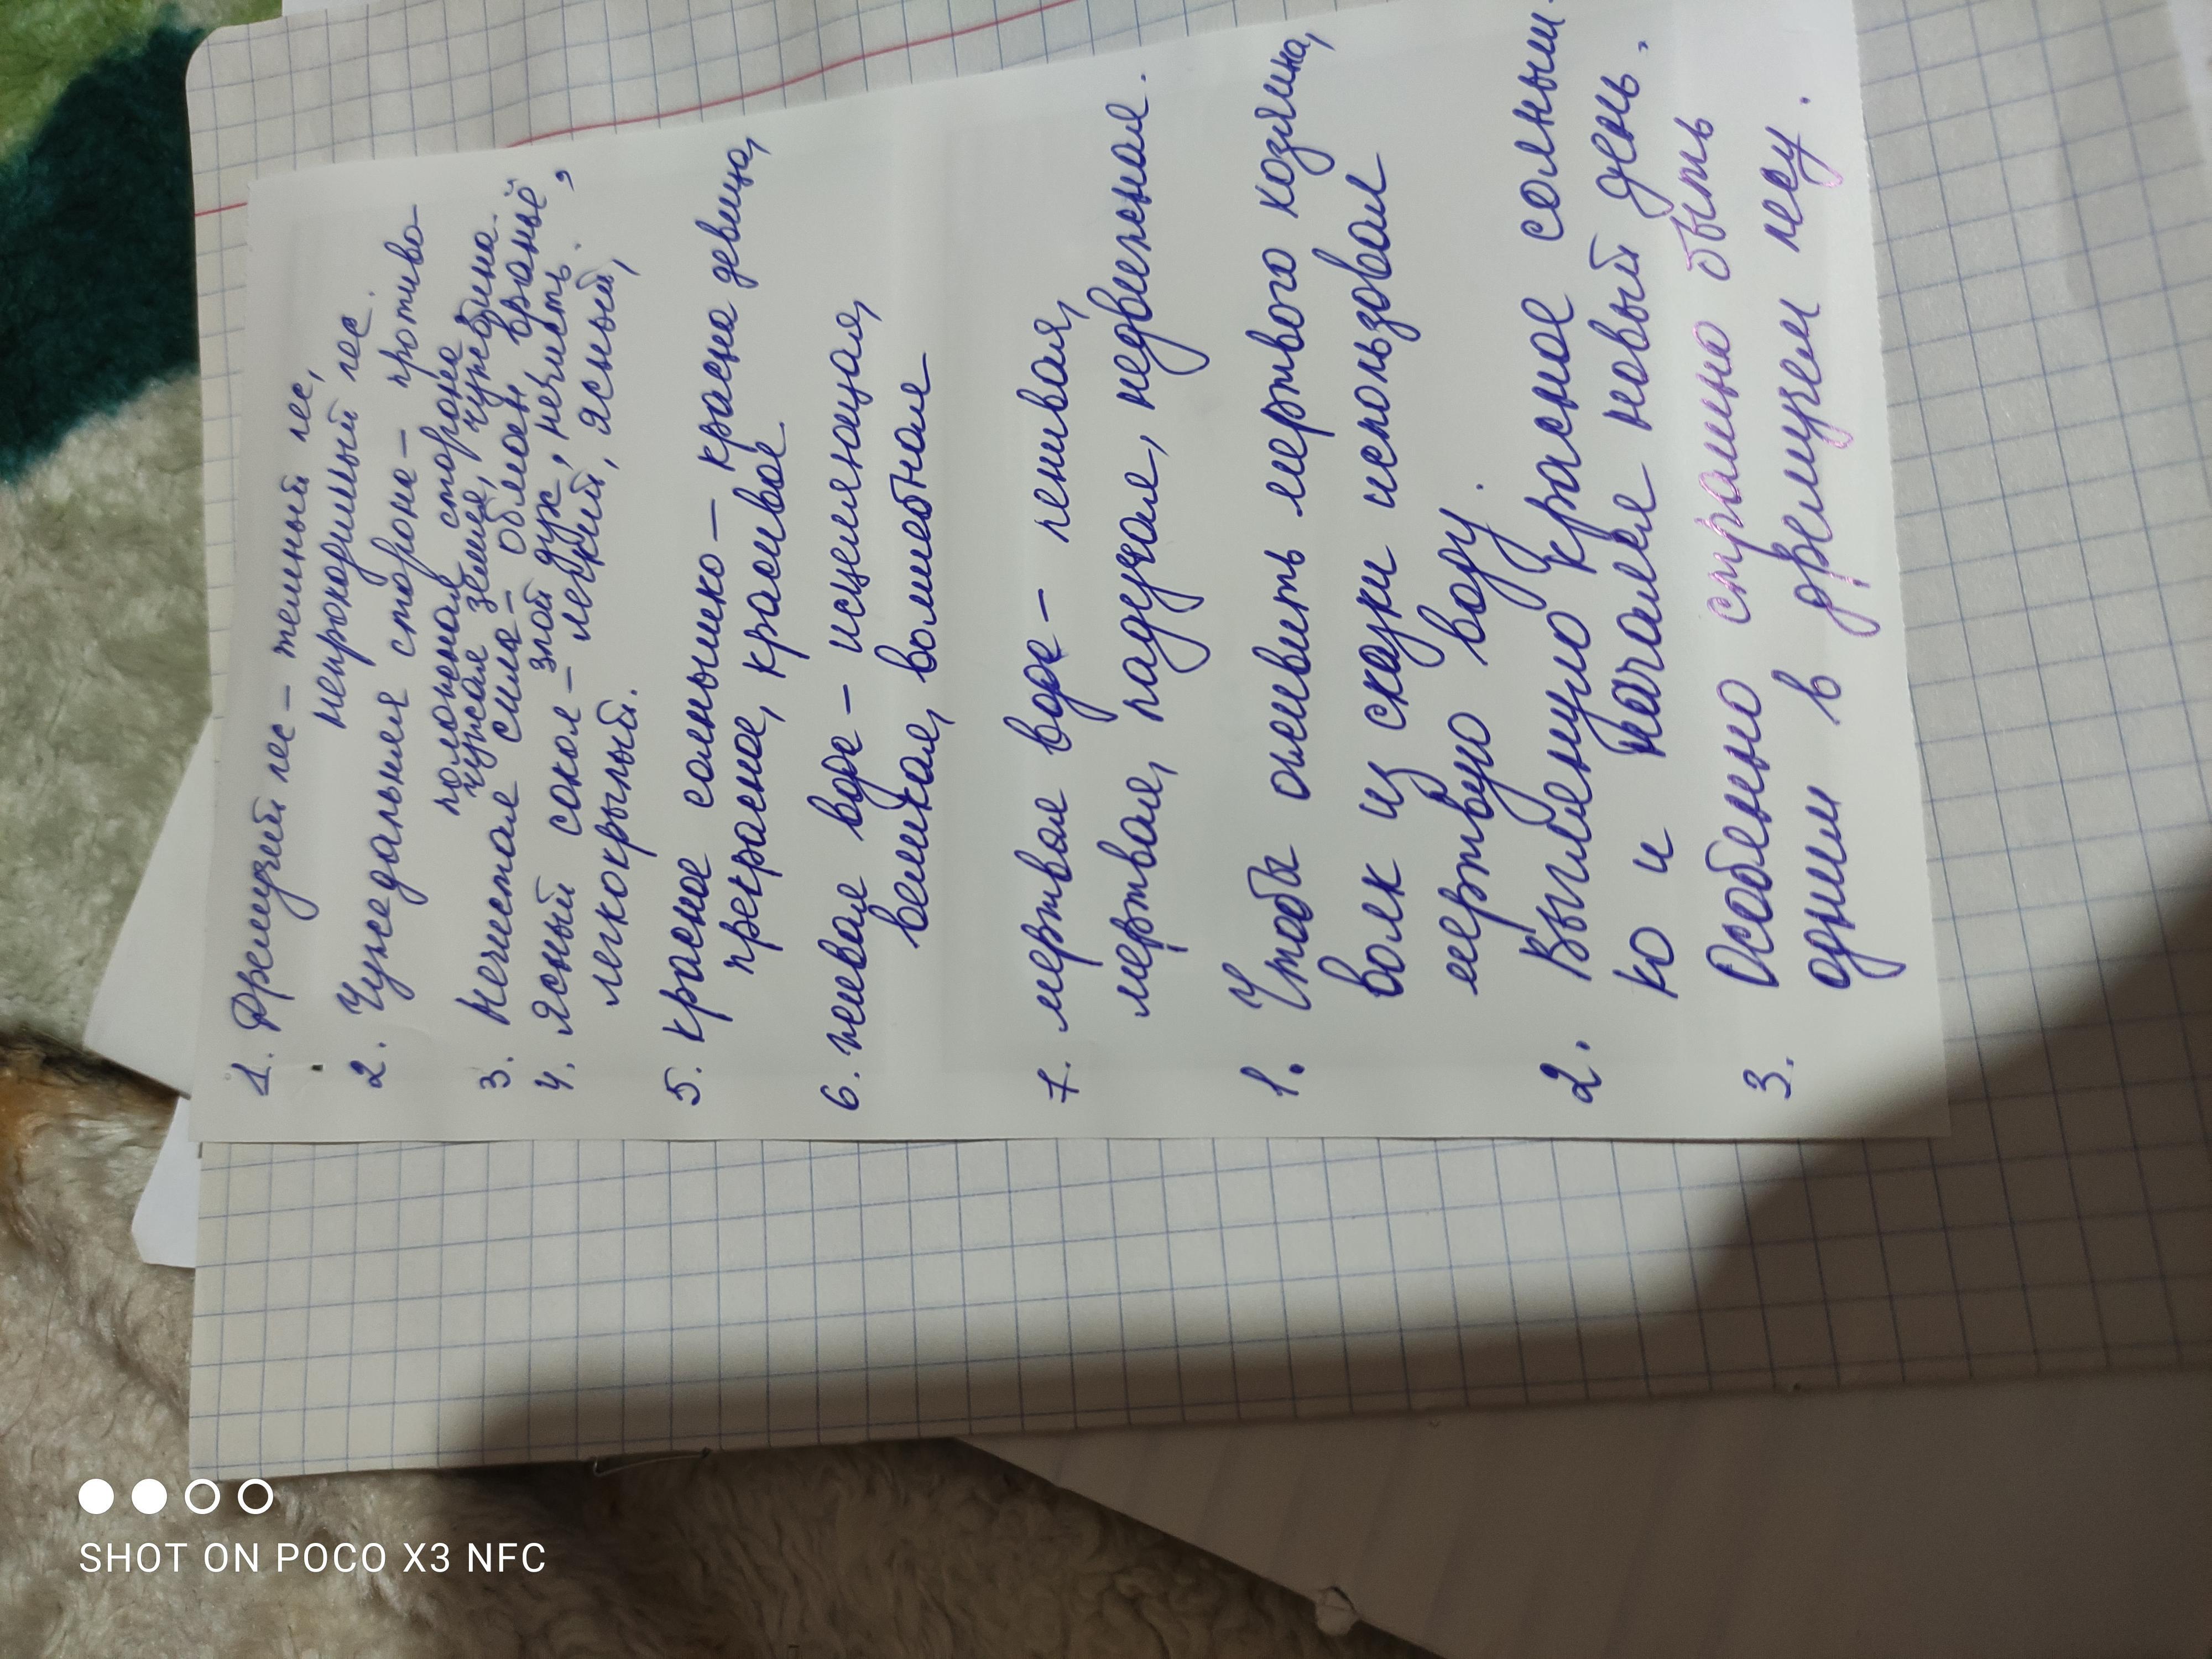 1. Дремучий лес – темный лес,
непроходимый лес.
2. Чужедальняя сторона – противо-
положная сторона
чужая земля, чужбина.
3. Нечистая сила – обман, враньё,
злой дух, нечисть.
4. Ясный сокол – легкий, ясный,
легкокрылый.
5. Красное солнышко – красна девица,
прекрасное, красивое
6. живая вода – исцеляющая,
великая, волшебная
7. мертвая вода – ленивая,
мертвая, падучая, недвежная.
1. Чтобы оживить мертвого хозяина,
волк из сказки использовал
мертвую воду.
2. Выглянуло красное солныш-
ко и начался новый день.
3. Особенно страшно быть
одним в дремучем лесу.
SHOT ON POCO X3 NFC